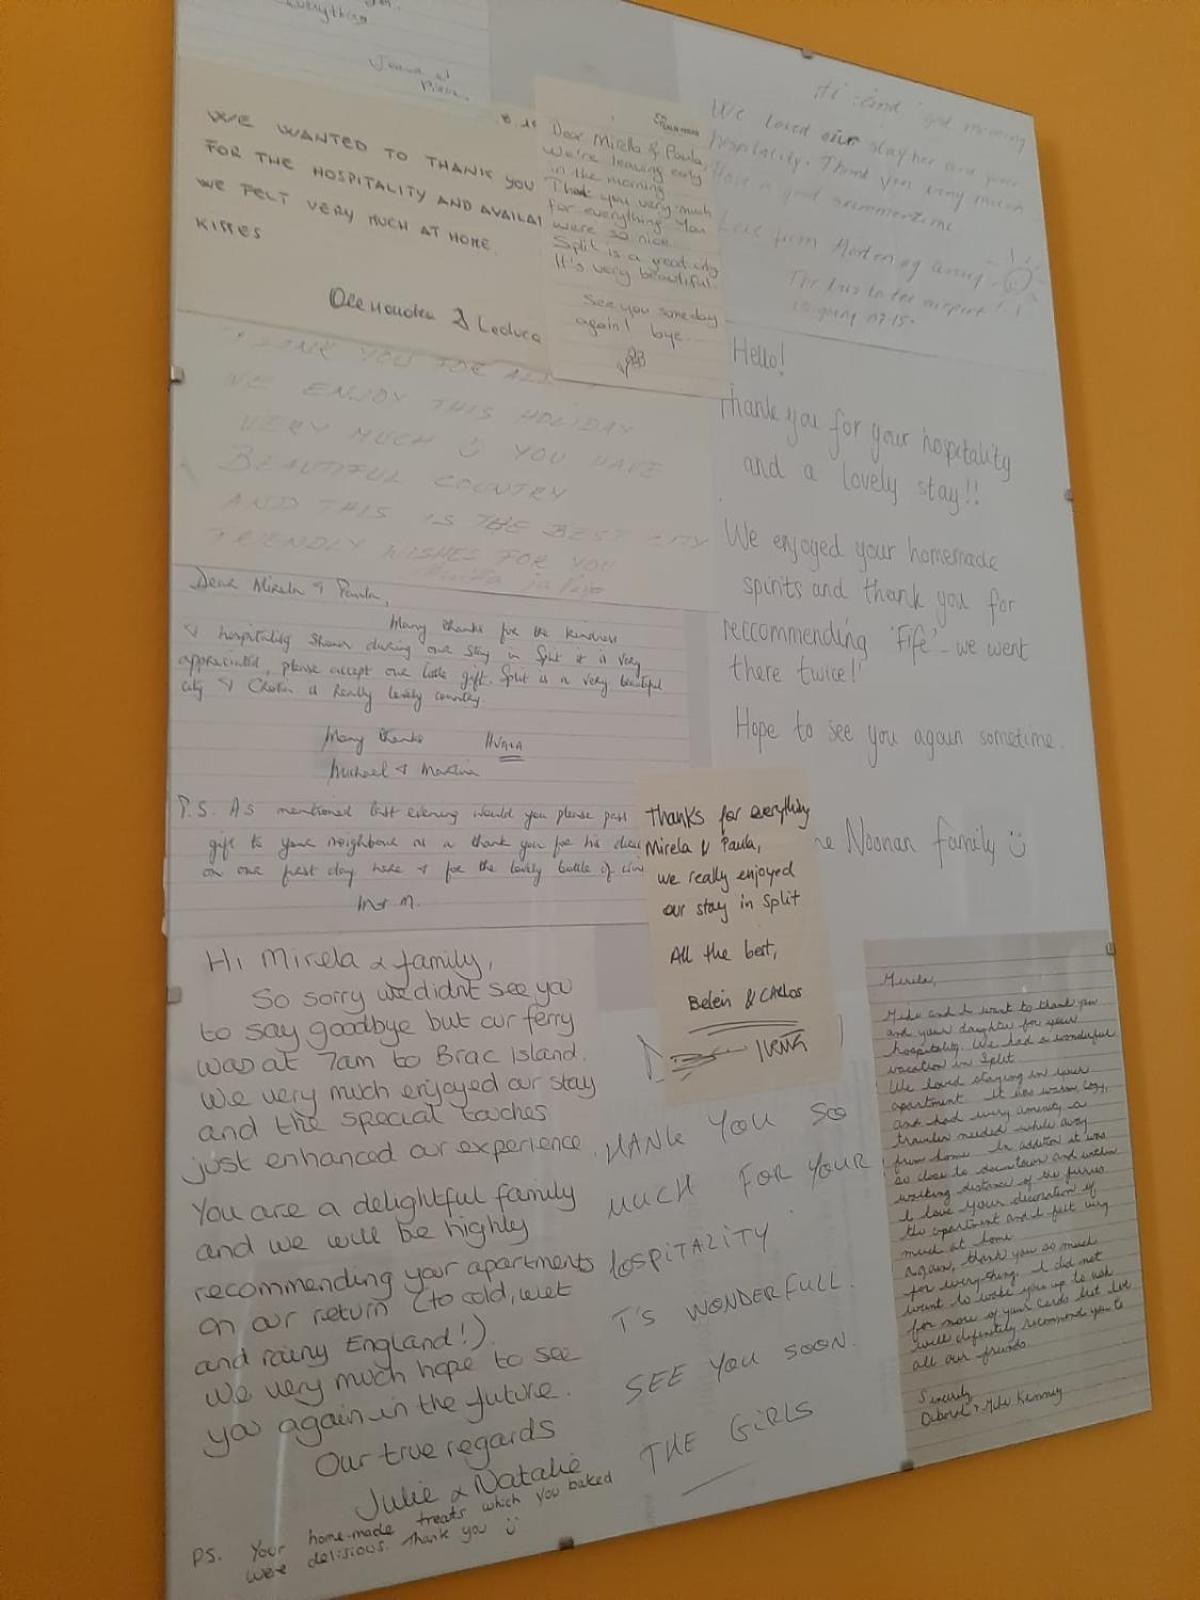 everything
WE WANTED TO THANK YOU
FOR THE HOSPITALITY AND AVAILAI
WE FELT VERY MUCH AT HOME.
KISSES
& Leduca
Dear Mirella & Paula,
We're leaving early
in the morning
Thank you very much
for everything. You
were so nice.
Split is a great city
It's very beautiful.
See you someday
again! bye.
Hi and good morning
We loved our stay her and your
hospitality. Thank you very much
Have a good summertime
Love from Morten og
The bus to the airport
is going 07:15
YOU FOR ALL
WE ENJOY THIS HOLIDAY
VERY MUCH YOU HAVE
BEAUTIFUL COUNTRY
AND THIS IS THE BEST CITY
FRIENDLY WISHES FOR YOU
Hello!
Thank you for your hospitality
and a lovely stay!!
We enjoyed your homemade
spirits and thank you for
reccommending 'Fife' - we went
there twice!
Hope to see you again sometime.
he Noonan family
Dear Mirela & Paula,
Many thanks for the kindness
& hospitality shown during our stay in Split it is very
appreciated, please accept our little gift. Split is a very beautiful
city & is really lovely country.
Many thanks HVALA
Michael & Martina
P.S. As mentioned last evening would you please pass
gift to your neighbour as a thank you for his
on our first day here & for the lovely bottle of
M & M.
Thanks for everything
Mirela & Paula,
we really enjoyed
our stay in Split
All the best,
Belén & CARlos
Hi Mirela & family,
So sorry we didnt see you
to say goodbye but our ferry
was at 7am to Brac Island.
We very much enjoyed our stay
and the special touches
just enhanced our experience.
You are a delightful family
and we will be highly
recommending your apartments
on our return (to cold, wet
and rainy England!).
We very much hope to see
you again in the future.
Our true regards
Julie & Natalie
PS. Your home-made treats which you baked
were delisious. Thank you
HANK YOU SO
MUCH FOR YOUR
HOSPITALITY
T'S WONDERFULL.
SEE YOU SOON.
THE GIRLS
Mirela,
Mike and I want to thank you
and your daughter for your
hospitality. We had a wonderful
vacation in Split.
We loved staying in your
apartment. It was warm, cozy,
and had every amenity a
traveler needed while away
from home. In addition it was
so close to downtown and within
walking distance of the ferries.
I love your decoration of
the apartment and I felt very
much at home.
Again, thank you so much
for everything. I did not
want to wake you up to ask
for more of your cards but we
will definitely recommend you to
all our friends.
Sincerely,
Deborah & Mike Kenney